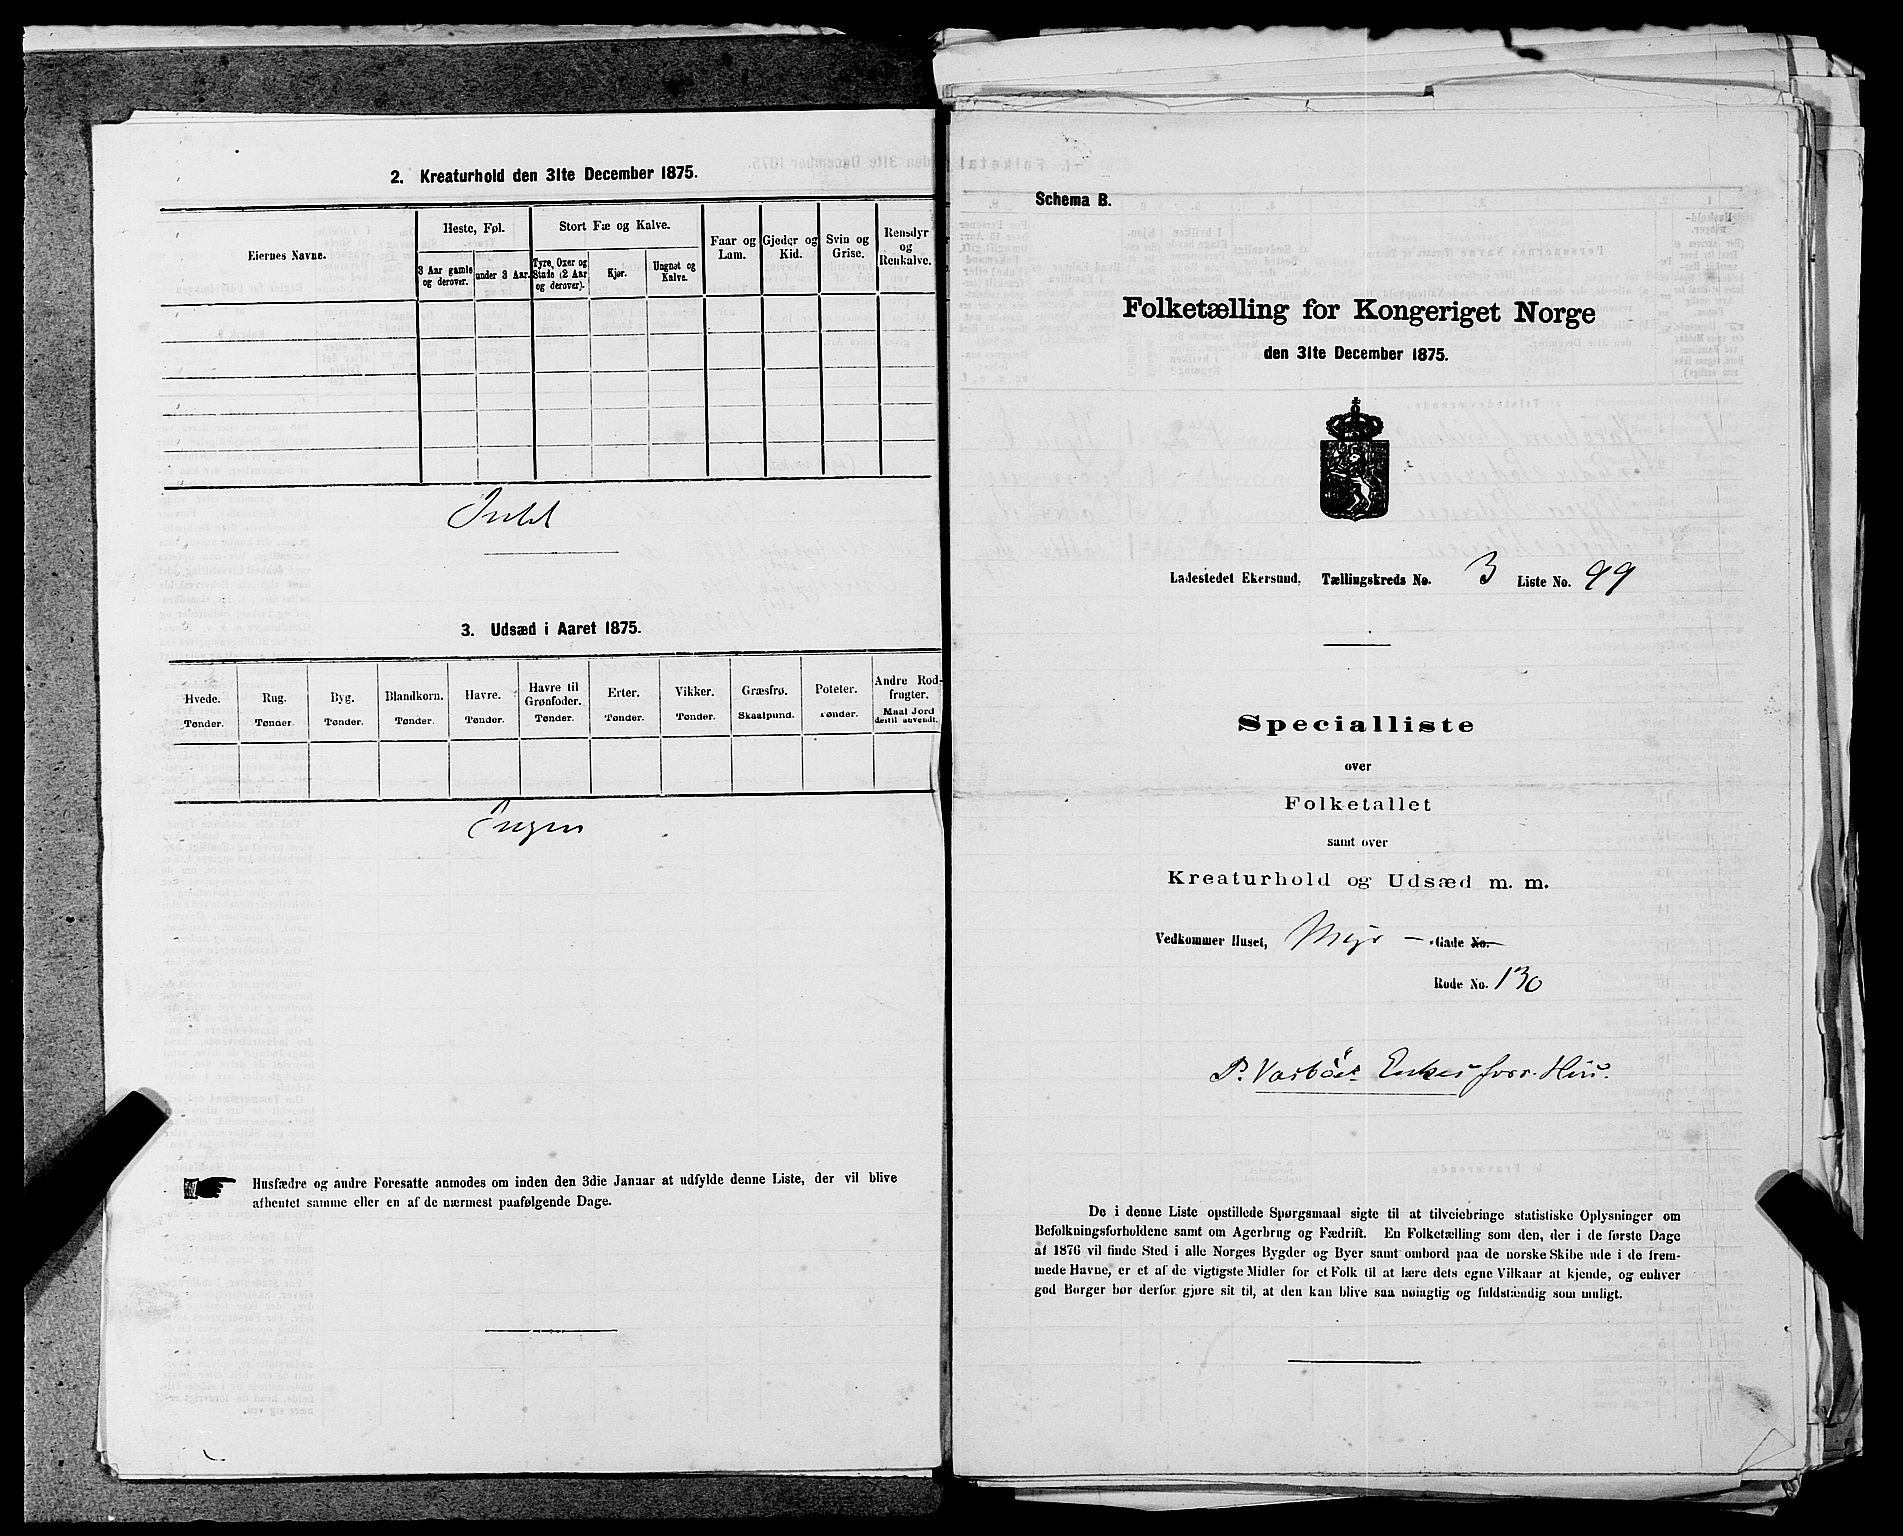 2. Kreaturhold den 31te December 1875.
Eiernes Navne.
Heste, Føl.
Stort Fæ og Kalve.
3 Aar gamle og derover.
under 3 Aar.
Tyre, Oxer og Stude (2 Aar og derover).
Kjør.
Ungnøt og Kalve.
Faar og Lam.
Gjeder og Kid.
Svin og Grise.
Rensdyr og Renkalve.
Intet
3. Udsæd i Aaret 1875.
Hvede. Rug. Byg. Blandkorn. Havre. Havre til Grønfoder. Erter. Vikker. Græsfrø. Poteter. Andre Rodfrugter.
Tønder. Tønder. Tønder. Tønder. Tønder. Tønder. Tønder. Tønder. Skaalpund. Tønder. Maal Jord dertil anvendt.
Ingen
Husfædre og andre Foresatte anmodes om inden den 3die Januar at udfylde denne Liste, der vil blive
afhentet samme eller en af de nærmest paafølgende Dage.
Schema B.
Folketælling for Kongeriget Norge
den 31te December 1875.
Ladestedet Ekersund, Tællingskreds No. 3 Liste No. 99
Specialliste
over
Folketallet
samt over
Kreaturhold og Udsæd m. m.
Vedkommer Huset, Myr - Gade No.
Rode No. 130
P. Enkes Hus.
De i denne Liste opstillede Spørgsmaal sigte til at tilveiebringe statistiske Oplysninger om
Befolkningsforholdene samt om Agerbrug og Fædrift. En Folketælling som den, der i de første Dage
af 1876 vil finde Sted i alle Norges Bygder og Byer samt ombord paa de norske Skibe ude i de frem-
mede Havne, er et af de vigtigste Midler for et Folk til at lære dets egne Vilkaar at kjende, og enhver
god Borger bør derfor gjøre sit til, at den kan blive saa nøiagtig og fuldstændig som muligt.